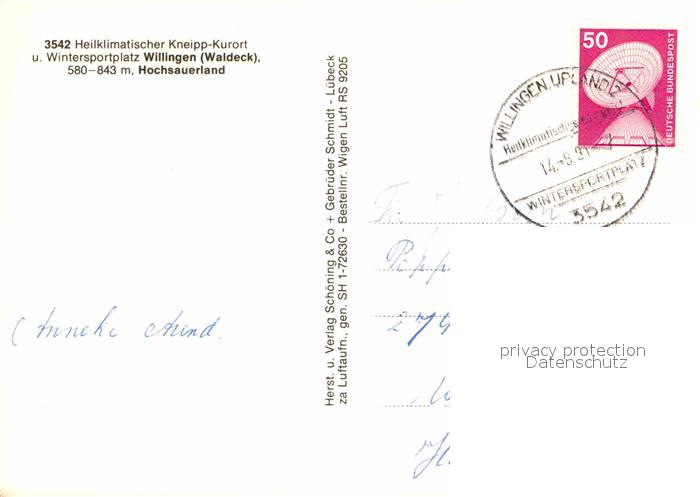 3542 Heilklimatischer Kneipp-Kurort
u. Wintersportplatz Willingen (Waldeck),
580–843 m, Hochsauerland
Herst. u. Verlag Schöning & Co + Gebrüder Schmidt - Lübeck
za Luftaufn., gen. SH 1-72630 - Bestellnr. Wigen Luft RS 9205
50
DEUTSCHE BUNDESPOST
WILLINGEN, UPLAND
Heilklimatischer
WINTERSPORTPLATZ
3542
(Anneke
privacy protection
Datenschutz